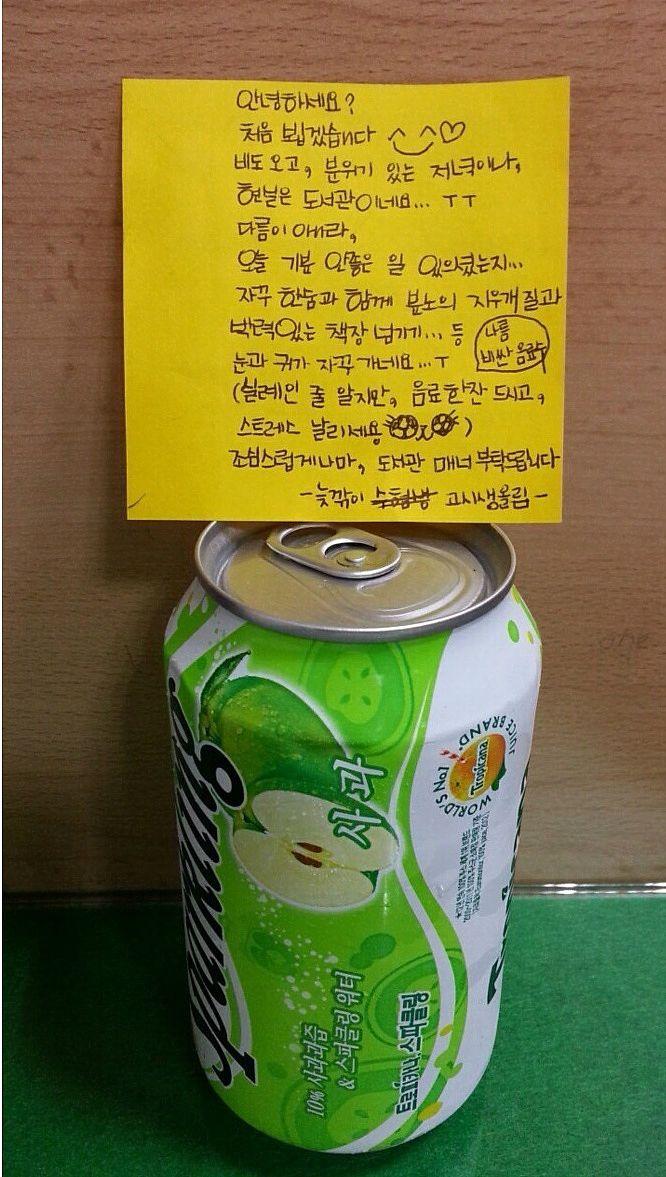 안녕하세요?
처음 뵙겠습니다 ^‿^♡
비도 오고, 분위기 있는 저녁이나,
현실은 도서관이네요... ㅜㅜ
다름이 아니라,
오늘 기분 안좋은 일 있으셨는지...
자꾸 한숨과 함께 분노의 지우개질과
박력있는 책장 넘기기... 등
눈과 귀가 자꾸 가네요...ㅜ
나름
비싼 음료
(실례인 줄 알지만, 음료한잔 드시고,
스트레스 날리세용)
조심스럽게나마, 도서관 매너 부탁드립니다
-늦깎이 고시생올림-
Sparkling
사과
WORLD'S No.1 JUICE BRAND.
Tropicana
10% 사과과즙
& 스파클링 워터
트로피카나 스파클링